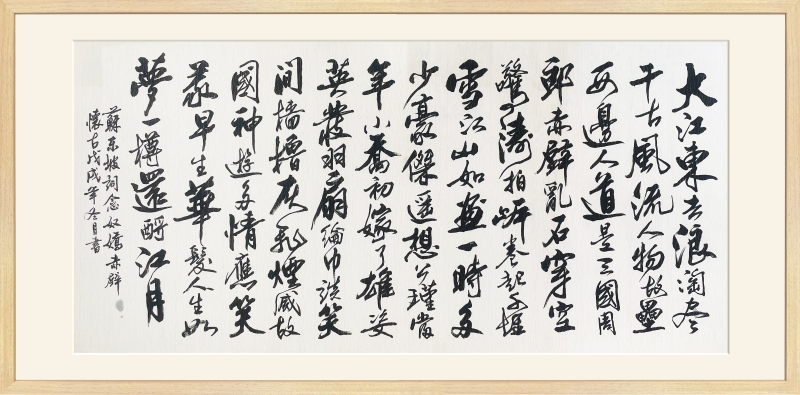 大江東去浪淘尽
千古風流人物故壘
西邊人道是三國周
郎赤壁亂石穿空
驚濤拍岸卷起千堆
雪江山如畫一時多
少豪傑遥想公瑾當
年小喬初嫁了雄姿
英發羽扇綸巾談笑
間檣櫓灰飛煙滅故
國神遊多情應笑
我早生華髮人生如
夢一樽還酹江月
蘇東坡詞念奴嬌赤壁
懷古戊戌年冬月書